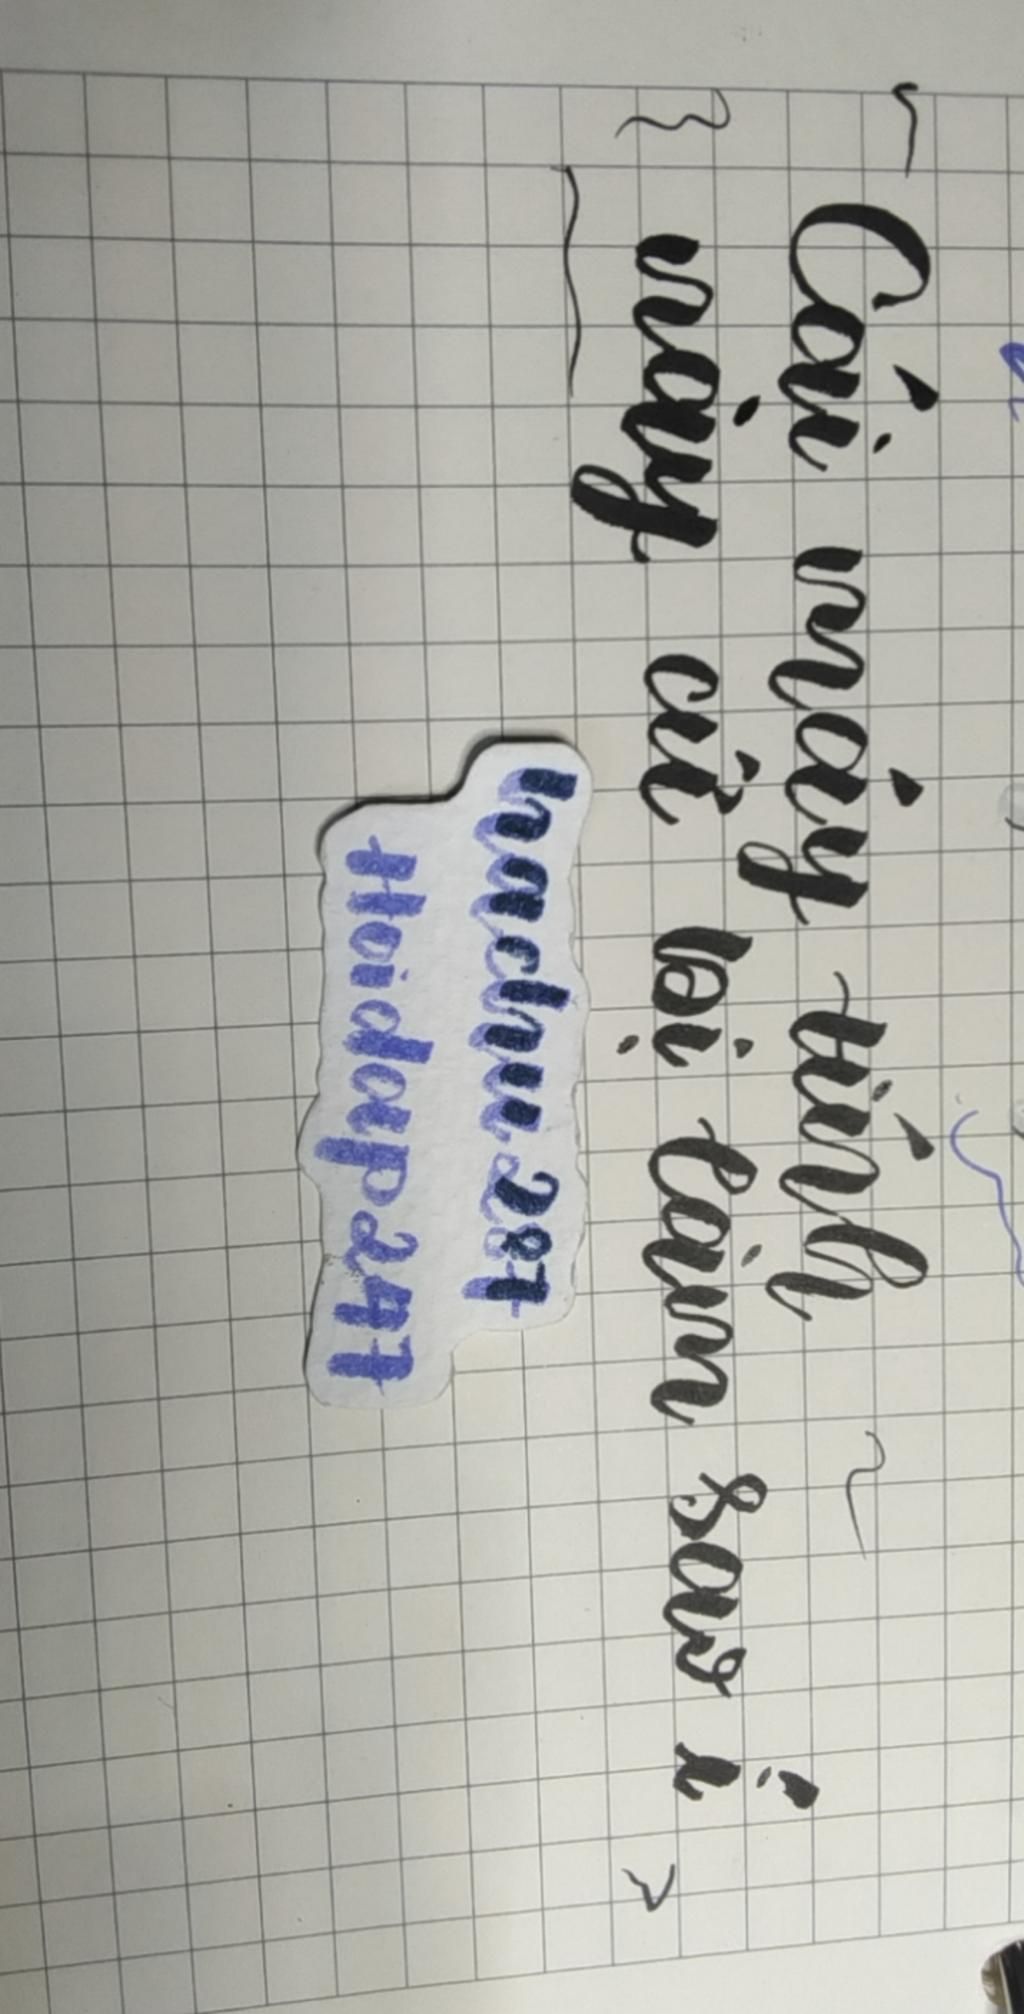 Cái máy tính
này cứ bị làm sao í
hachu.287
Hoidap247